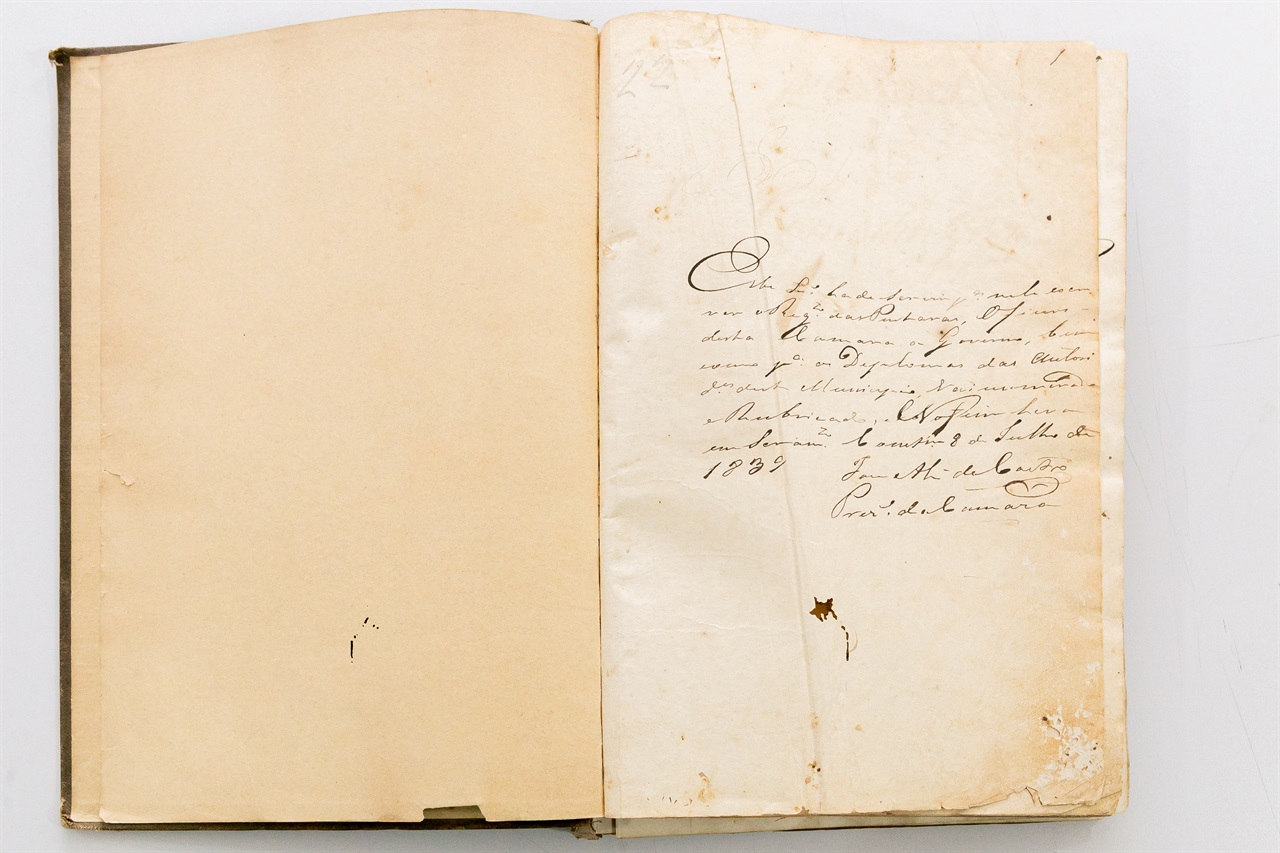 1
22
Este L.º ha de servir p.ª nele escre
ver o Reg.º das Portarias, Oficios
desta Camara e Governo, bem
como p.ª os Diplomas das Autori
d.es deste Municipio, Vai numerado
e Rubricado, e No fim leva
em Serram.to 8 de Julho de
1839 de Castro
Prez.e da Camara